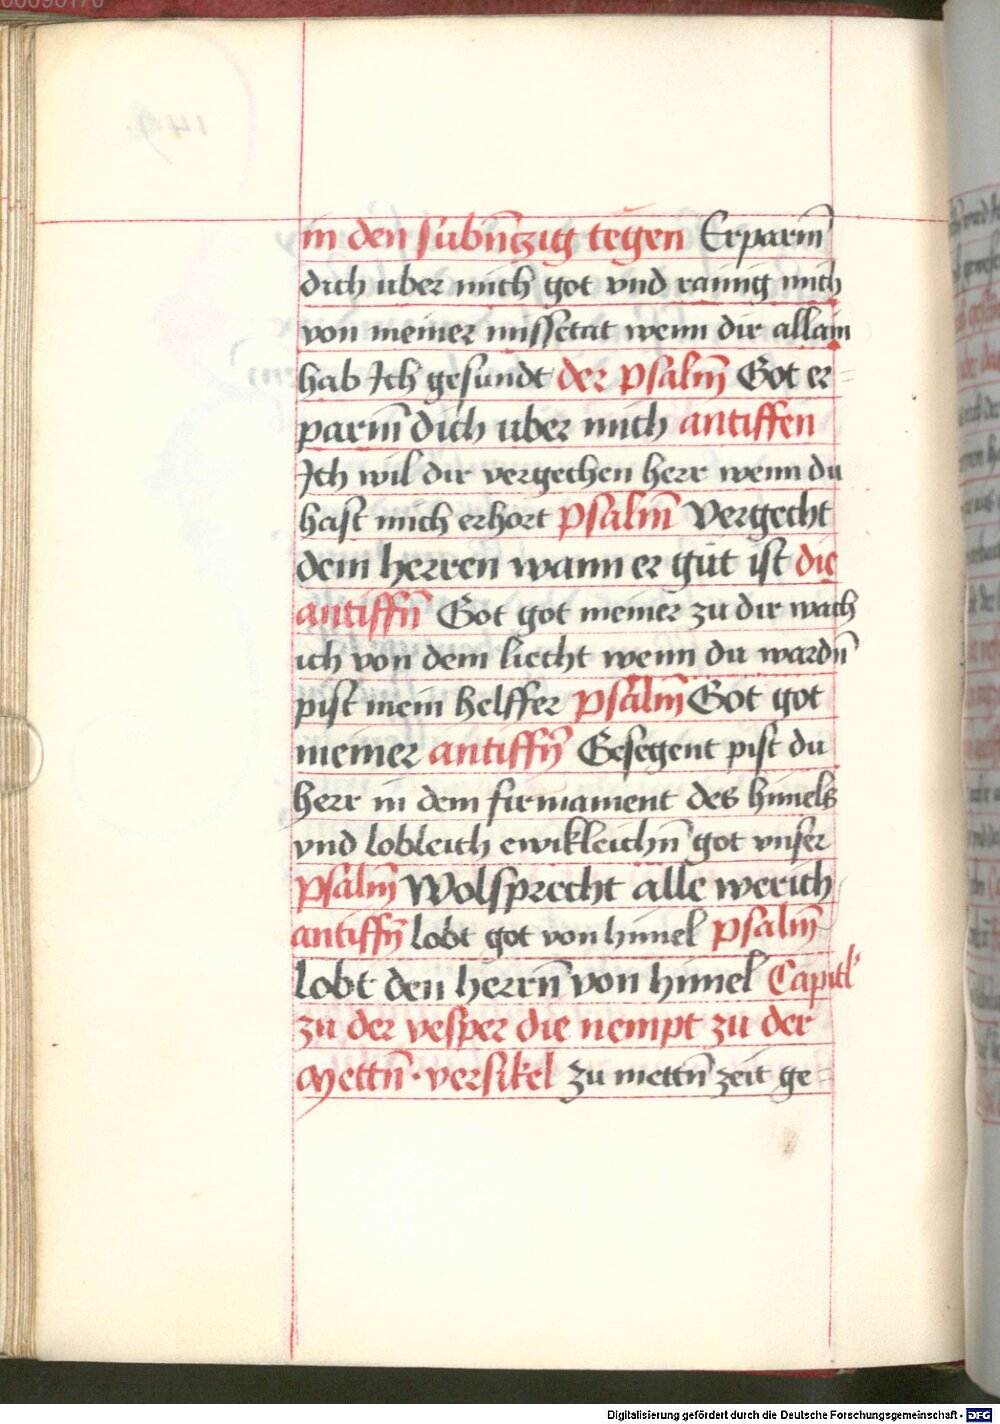 in den subn̄tzig tegen Erparm̄
dich uber mich got vnd rainig mich
von meiner missetat wenn dir allain
hab Ich gesundt der psalm̄ Got er=
parm̄ dich uber mich antiffen
Ich wil dir vergechen herr wenn du
hast mich erhort psalm̄ Vergecht
dem herren wann er gut ist die
antiffn̄ Got got meiner zu dir wach
ich von dem liecht wenn du wardn̄
pist mein helffer psalm̄ Got got
meiner antiffn̄ Gesegent pist du
herr in dem firmament des himels
vnd lobleich ewikleichn̄ got vnser
psalm̄ Wolsprecht alle werich
antiffn̄ lobt got von himel psalm̄
lobt den herrn̄ von himel Capitl
zu der vesper die nempt zu der
Mettn̄ · versikel zu mettn̄ zeit ge=
Digitalisierung gefördert durch die Deutsche Forschungsgemeinschaft - DFG